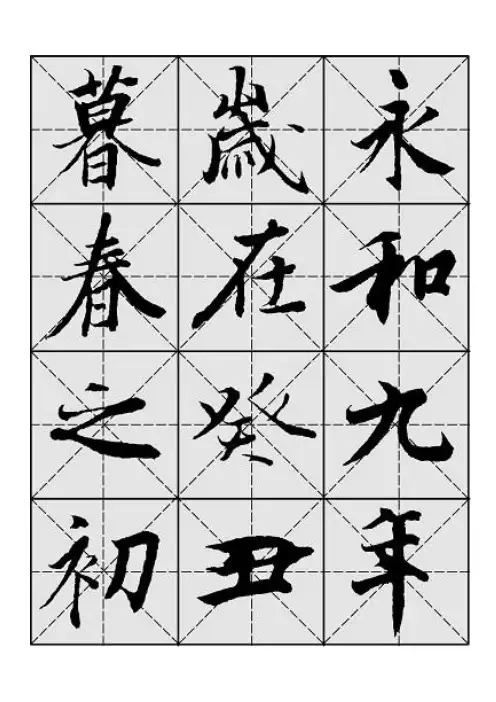 永和九年
歲在癸丑
暮春之初